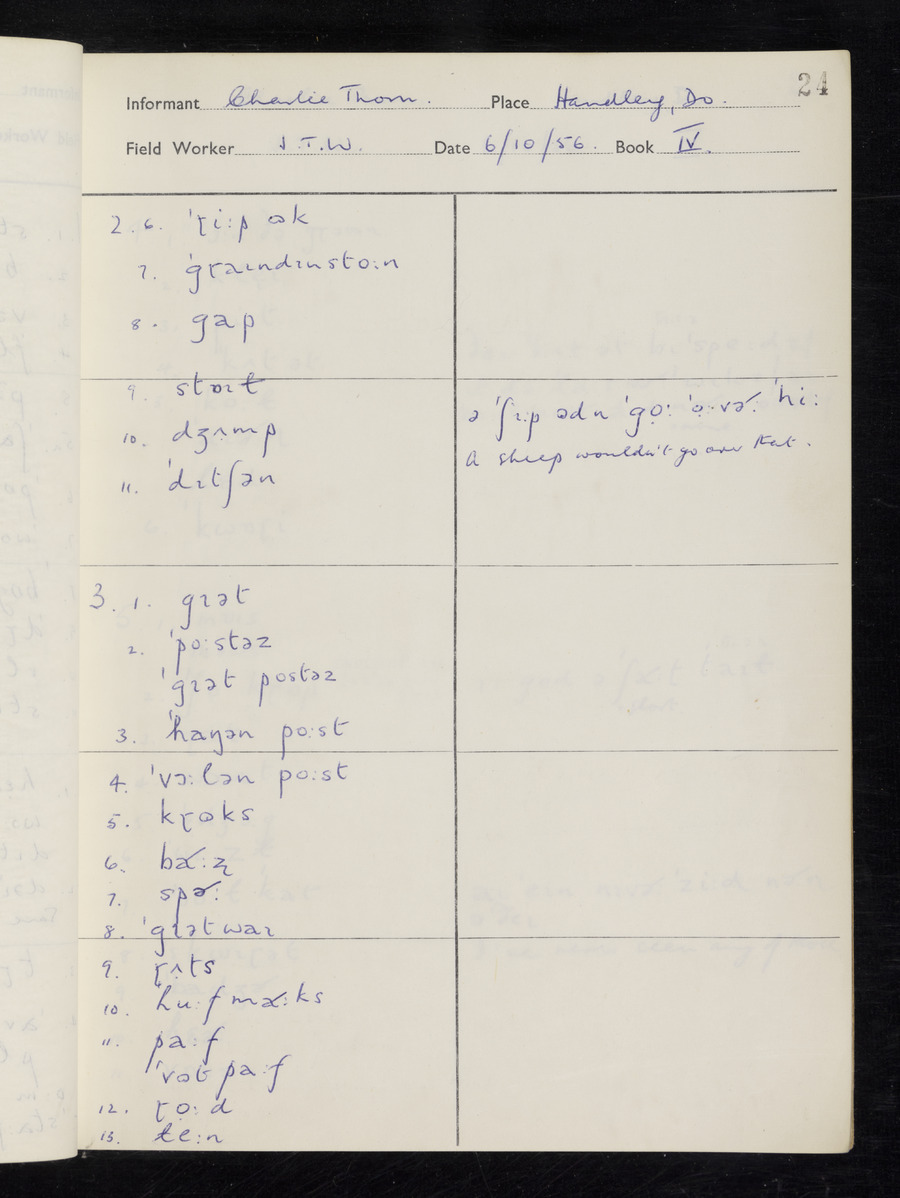 24
Informant Charlie Thorn. Place Handley, Do.
Field Worker J.T.W. Date 6/10/56. Book IV.
2. 6. ˈɽiːp ɷk
7. ˈgɽaɪndɪnstoːn
8. gap
9. stɒɪt
10. dʒʌmp
11. ˈdɪtʃən
ə ˈʃiːp ədn ˈgo̞ː ˈo̞ːvəʴ ˈhiː
A sheep wouldn't go over that.
3. 1. gɪət
2. ˈpoːstəz
ˈgɪət postəz
3. ˈhaŋən poːst
4. ˈvɔːlən poːst
5. kɽɷks
6. bɑʴːʐ
7. spəʴː
8. ˈgɪətwaɪ
9. ɽʌts
10. huːfmɑʴːks
11. paːf
ˈvɷtpaːf
12. ɽo̞ːd
13. teːn